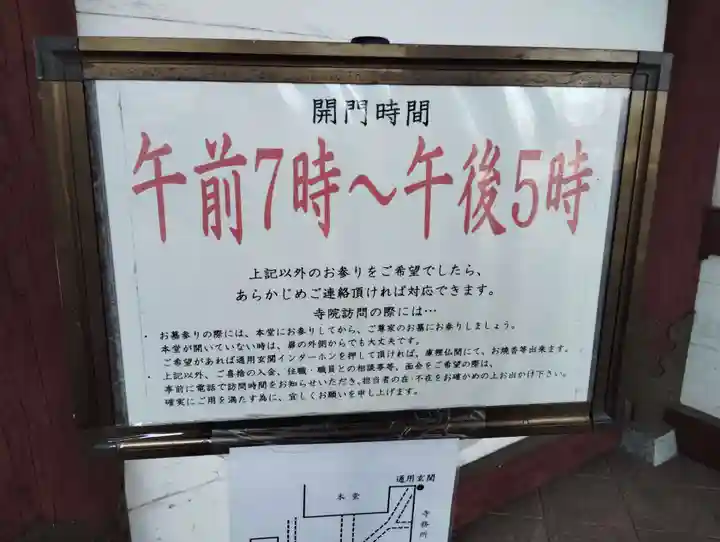 開門時間
午前7時～午後5時
上記以外のお参りをご希望でしたら、
あらかじめご連絡頂ければ対応できます。
寺院訪問の際には…
・ お墓参りの際には、本堂にお参りしてから、ご尊家のお墓にお参りしましょう。
本堂が開いていない時は、扉の外側からでも大丈夫です。
ご希望があれば通用玄関インターホンを押して頂ければ、庫裡仏間にて、お焼香等出来ます。
・ 上記以外、ご喜捨の入金、住職・職員との相談事等、面会をご希望の際は、
事前に電話で訪問時間をお知らせいただき、担当者の在・不在をお確かめの上お出かけ下さい。
確実にご用を満たす為に、宜しくお願いを申し上げます。
通用玄関
本堂
寺務所